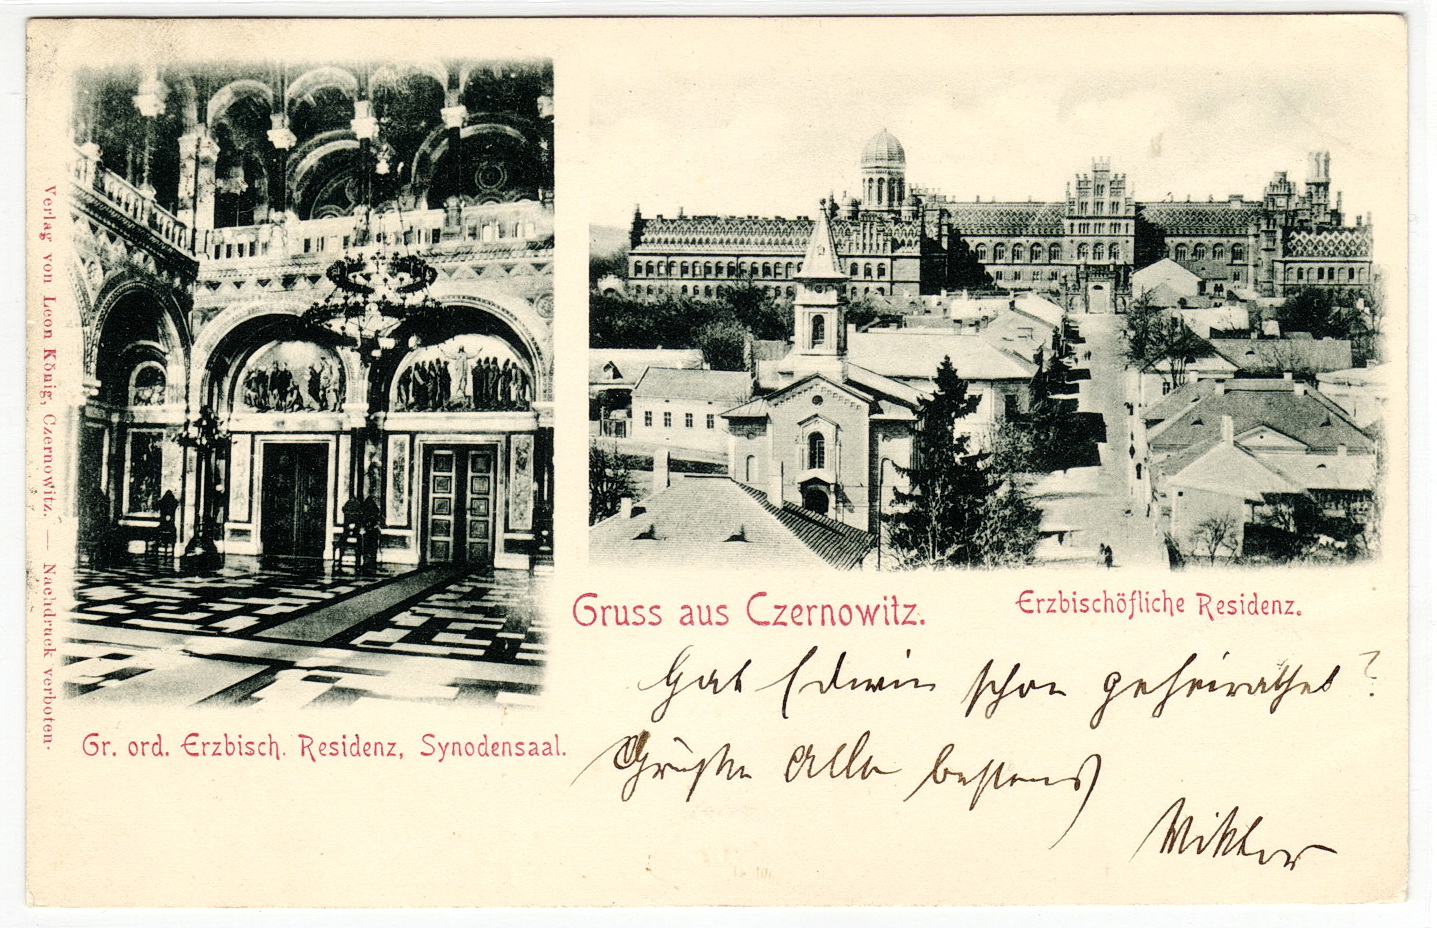 Verlag von Leon König, Czernowitz. — Nachdruck verboten.
Gruss aus Czernowitz.
Erzbischöfliche Residenz.
Gr. ord. Erzbisch. Residenz, Synodensaal.
Hat Edwin schon geheirathet?
Grüße Alle bestens
Viktor